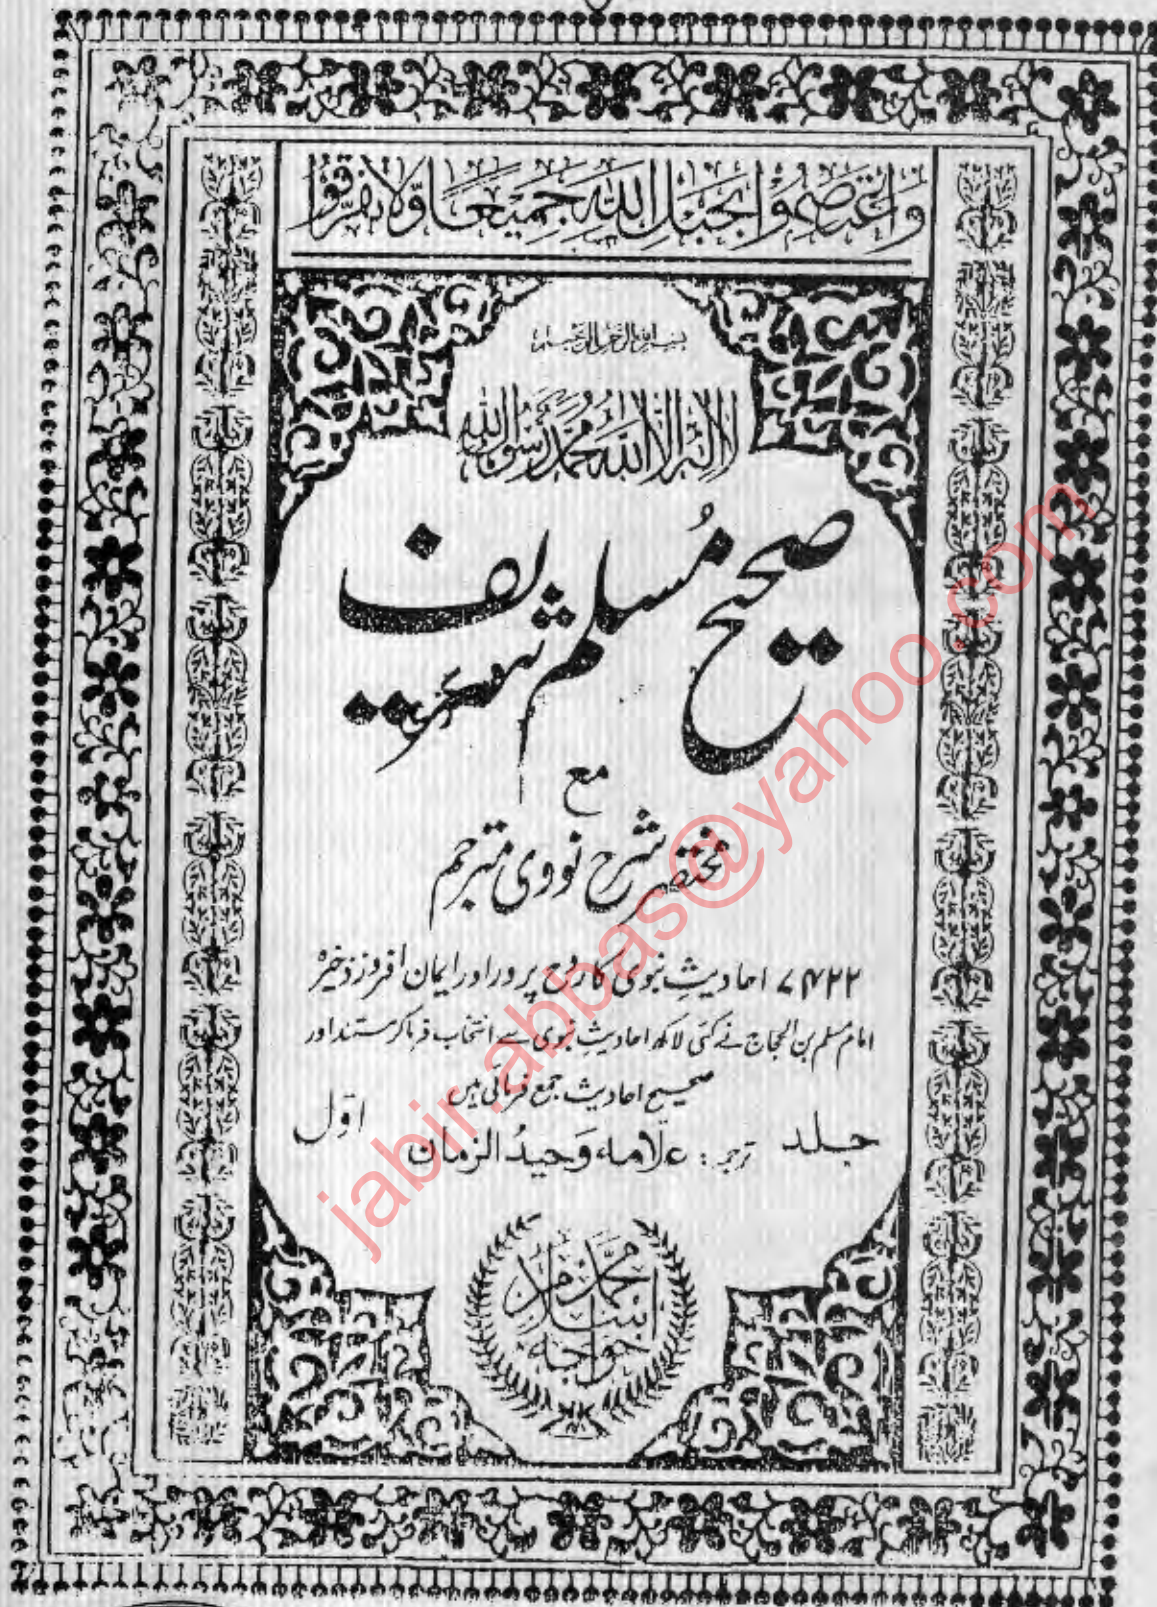 وَاعْتَصِمُوْا بِحَبْلِ اللّٰهِ جَمِيْعًا وَّلَا تَفَرَّقُوْا
بسم الله الرحمن الرحيم
لَا اِلٰهَ اِلَّا اللهُ مُحَمَّدٌ رَّسُوْلُ اللهِ
صحیح مُسلم شریف
مع
مختصر شرح نووی مترجم
۷۴۲۲ احادیثِ نبوی کا روح پرور اور ایمان افروز ذخیرہ
امام مسلم بن الحجاج نے کئی لاکھ احادیثِ نبوی سے انتخاب فرما کر مستند اور
صحیح احادیث جمع فرمائی ہیں
جلد اوّل
ترجمہ: علامہ وَحیدُ الزمان
محمد اسلام
خواجہ
jabir.abbas@yahoo.com